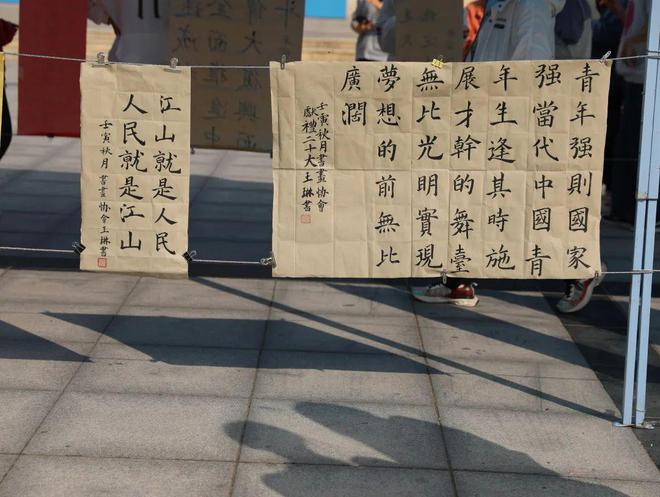 青年强則國家
强當代中國青
年生逢其時施
展才幹的舞臺
無比光明實現
夢想的前無比
廣闊
壬寅秋月書畫協會
獻禮二十大王琳書
江山就是人民
人民就是江山
壬寅秋月書畫協會王琳書